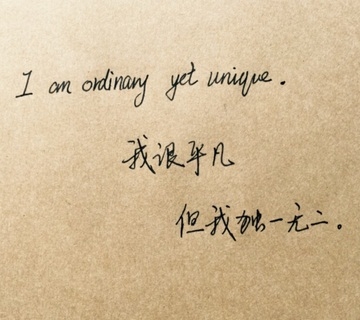 I am ordinary yet unique.
我很平凡
但我独一无二。